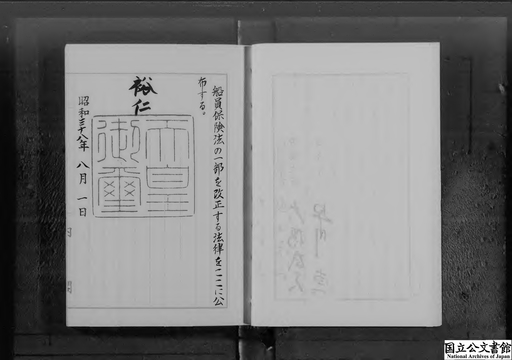 船員保険法の一部を改正する法律をここに公
布する。
裕仁
天皇
御璽
昭和三十八年 八月 一日
国立公文書館
National Archives of Japan